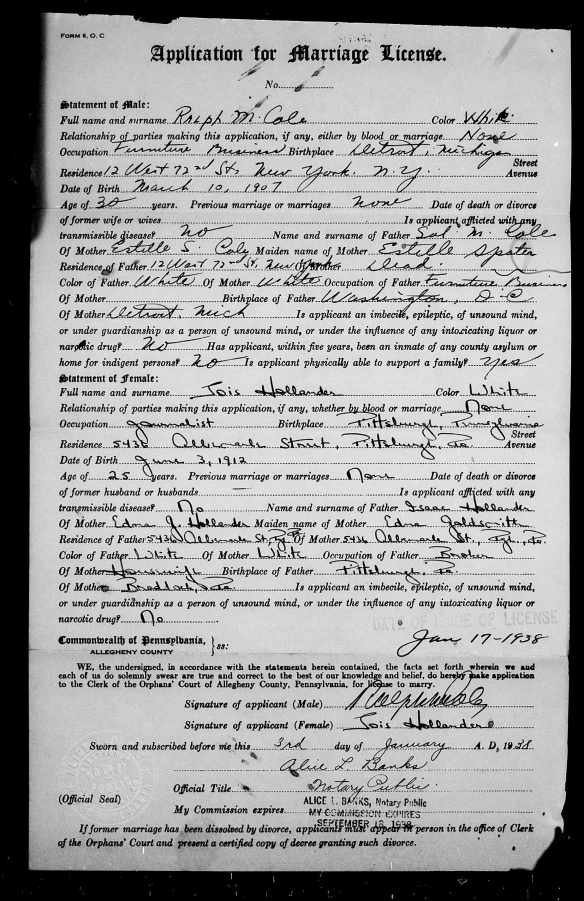 FORM 8, O. C.
Application for Marriage License.
No.
Statement of Male:
Full name and surname Ralph M. Cole Color White
Relationship of parties making this application, if any, either by blood or marriage None
Occupation Furniture Business Birthplace Detroit, Michigan
Street
Residence 12 West 72nd St, New York, N.Y. Avenue
Date of Birth March 10, 1907
Age of 30 years. Previous marriage or marriages None Date of death or divorce
of former wife or wives Is applicant afflicted with any
transmissible disease? No Name and surname of Father Sol M. Cole
Of Mother Estelle S. Cole Maiden name of Mother Estelle
Residence of Father 12 West 72nd St, New York Of Mother Dead
Color of Father White Of Mother White Occupation of Father Furniture Business
Of Mother Birthplace of Father Washington, D C
Of Mother Detroit, Mich Is applicant an imbecile, epileptic, of unsound mind,
or under guardianship as a person of unsound mind, or under the influence of any intoxicating liquor or
narcotic drug? No Has applicant, within five years, been an inmate of any county asylum or
home for indigent persons? No Is applicant physically able to support a family? Yes
Statement of Female:
Full name and surname Jois Hollander Color White
Relationship of parties making this application, if any, whether by blood or marriage None
Occupation Journalist Birthplace Pittsburgh, Pennsylvania
Street
Residence 5436 Albemarle Street, Pittsburgh, Pa. Avenue
Date of Birth June 3, 1912
Age of 25 years. Previous marriage or marriages None Date of death or divorce
of former husband or husbands Is applicant afflicted with any
transmissible disease? No Name and surname of Father Isaac Hollander
Of Mother Edna J. Hollander Maiden name of Mother Edna Goldsmith
Residence of Father 5436 Albemarle St, Pgh Of Mother 5436 Albemarle St., Pgh., Pa.
Color of Father White Of Mother White Occupation of Father Broker
Of Mother Housewife Birthplace of Father Pittsburgh, Pa.
Of Mother Braddock, Pa Is applicant an imbecile, epileptic, of unsound mind,
or under guardianship as a person of unsound mind, or under the influence of any intoxicating liquor or
narcotic drug? No
DATE OF ISSUE OF LICENSE
Commonwealth of Pennsylvania, ss: Jan 17-1938
ALLEGHENY COUNTY
WE, the undersigned, in accordance with the statements herein contained, the facts set forth wherein we and
each of us do solemnly swear are true and correct to the best of our knowledge and belief, do hereby make application
to the Clerk of the Orphans' Court of Allegheny County, Pennsylvania, for license to marry.
Signature of applicant (Male) Ralph M Cole
Signature of applicant (Female) Jois Hollander
Sworn and subscribed before me this 3rd day of January A. D. 1938
Alice L Banks
Official Title Notary Public
(Official Seal)
ALICE L. BANKS, Notary Public
My Commission expires MY COMMISSION EXPIRES
SEPTEMBER 18, 1938
If former marriage has been dissolved by divorce, applicants must appear in person in the office of Clerk
of the Orphans' Court and present a certified copy of decree granting such divorce.